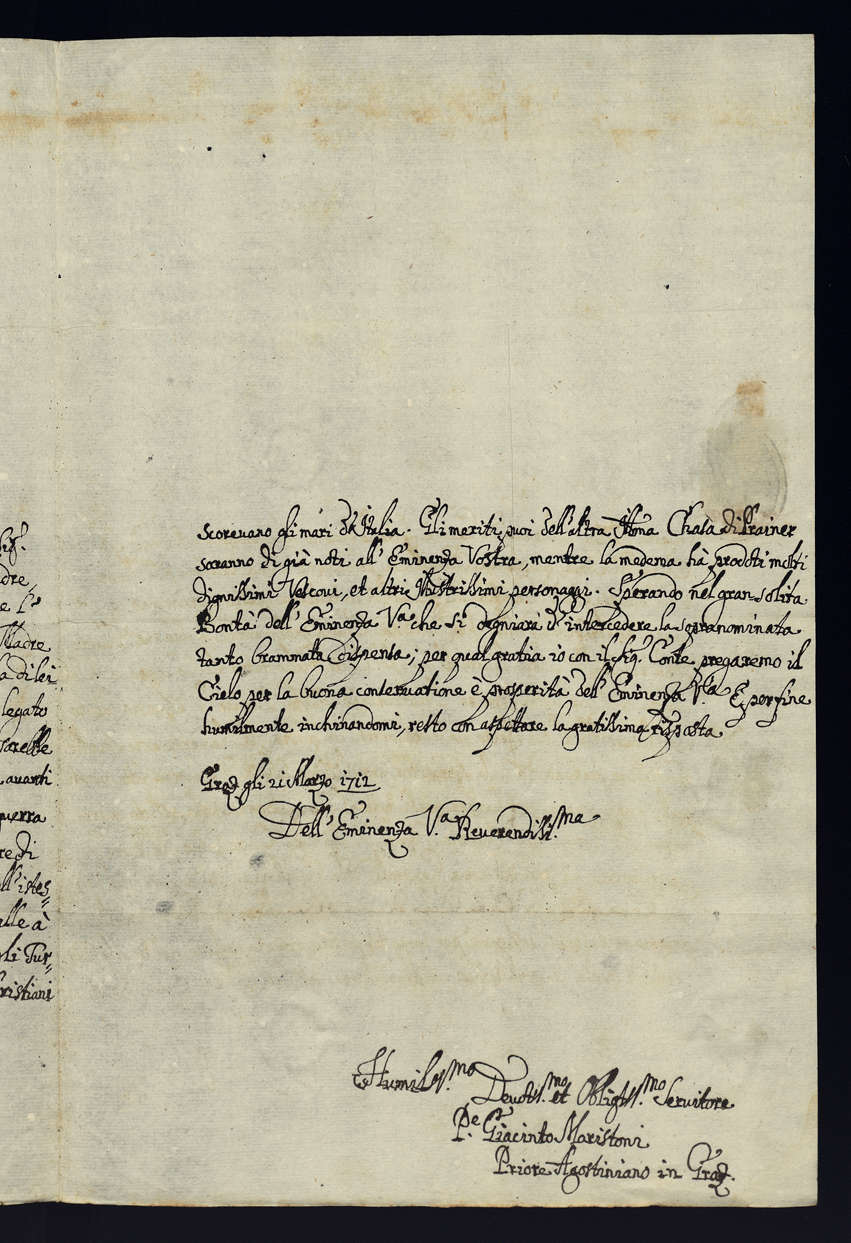 scorevano gli mari d'Italia. Gli meriti poi dell'altra Illma Chasa di Prainer
saranno di già noti all' Eminenza Vostra, mentre la medema hà prodoti molti
dignissimi Vescovi, et altri Illustrissimi personaggi. Sperando nel gran solita
Bontà dell' Eminenza Va che si degniarà d'intercedere la sopranominata
tanto brammata dispensa; per qual gratia io con il Sig. Conte pregaremo il
Cielo per la buona conservatione è prosperità dell' Eminenza Vra E per fine
humilmente inchinandomi, resto con aspettare la gratissima risposta
Graz gli 21 Marzo 1712
Dell' Eminenza Va Reverendiss.ma
Humiliss.mo Devotiss.mo et Obligtiss.mo Servitore
P.e Giacinto Maristoni
Priore Agostiniano in Graz.
dre
e
Madre
a di lei
legato
sarebbe
avanti
guerra
re di
ll' istes=
alle à
gli Tur=
ristiani